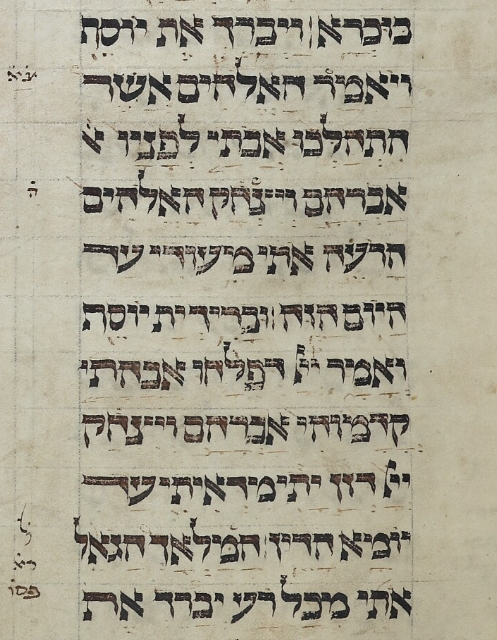 בוכרא ויברך את יוסף
ויאמר האלהים אשר
התהלכו אבתי לפניו א
אברהם ויצחק האלהים
הרעה אתי מעודי עד
היום הזה ובריך ית יוסף
ואמר ייי דפלחו אבהתי
קדמוהי אברהם ויצחק
ייי דזן יתי מדאיתי עד
יומא הדין המלאך הגאל
אתי מכל רע יברך את